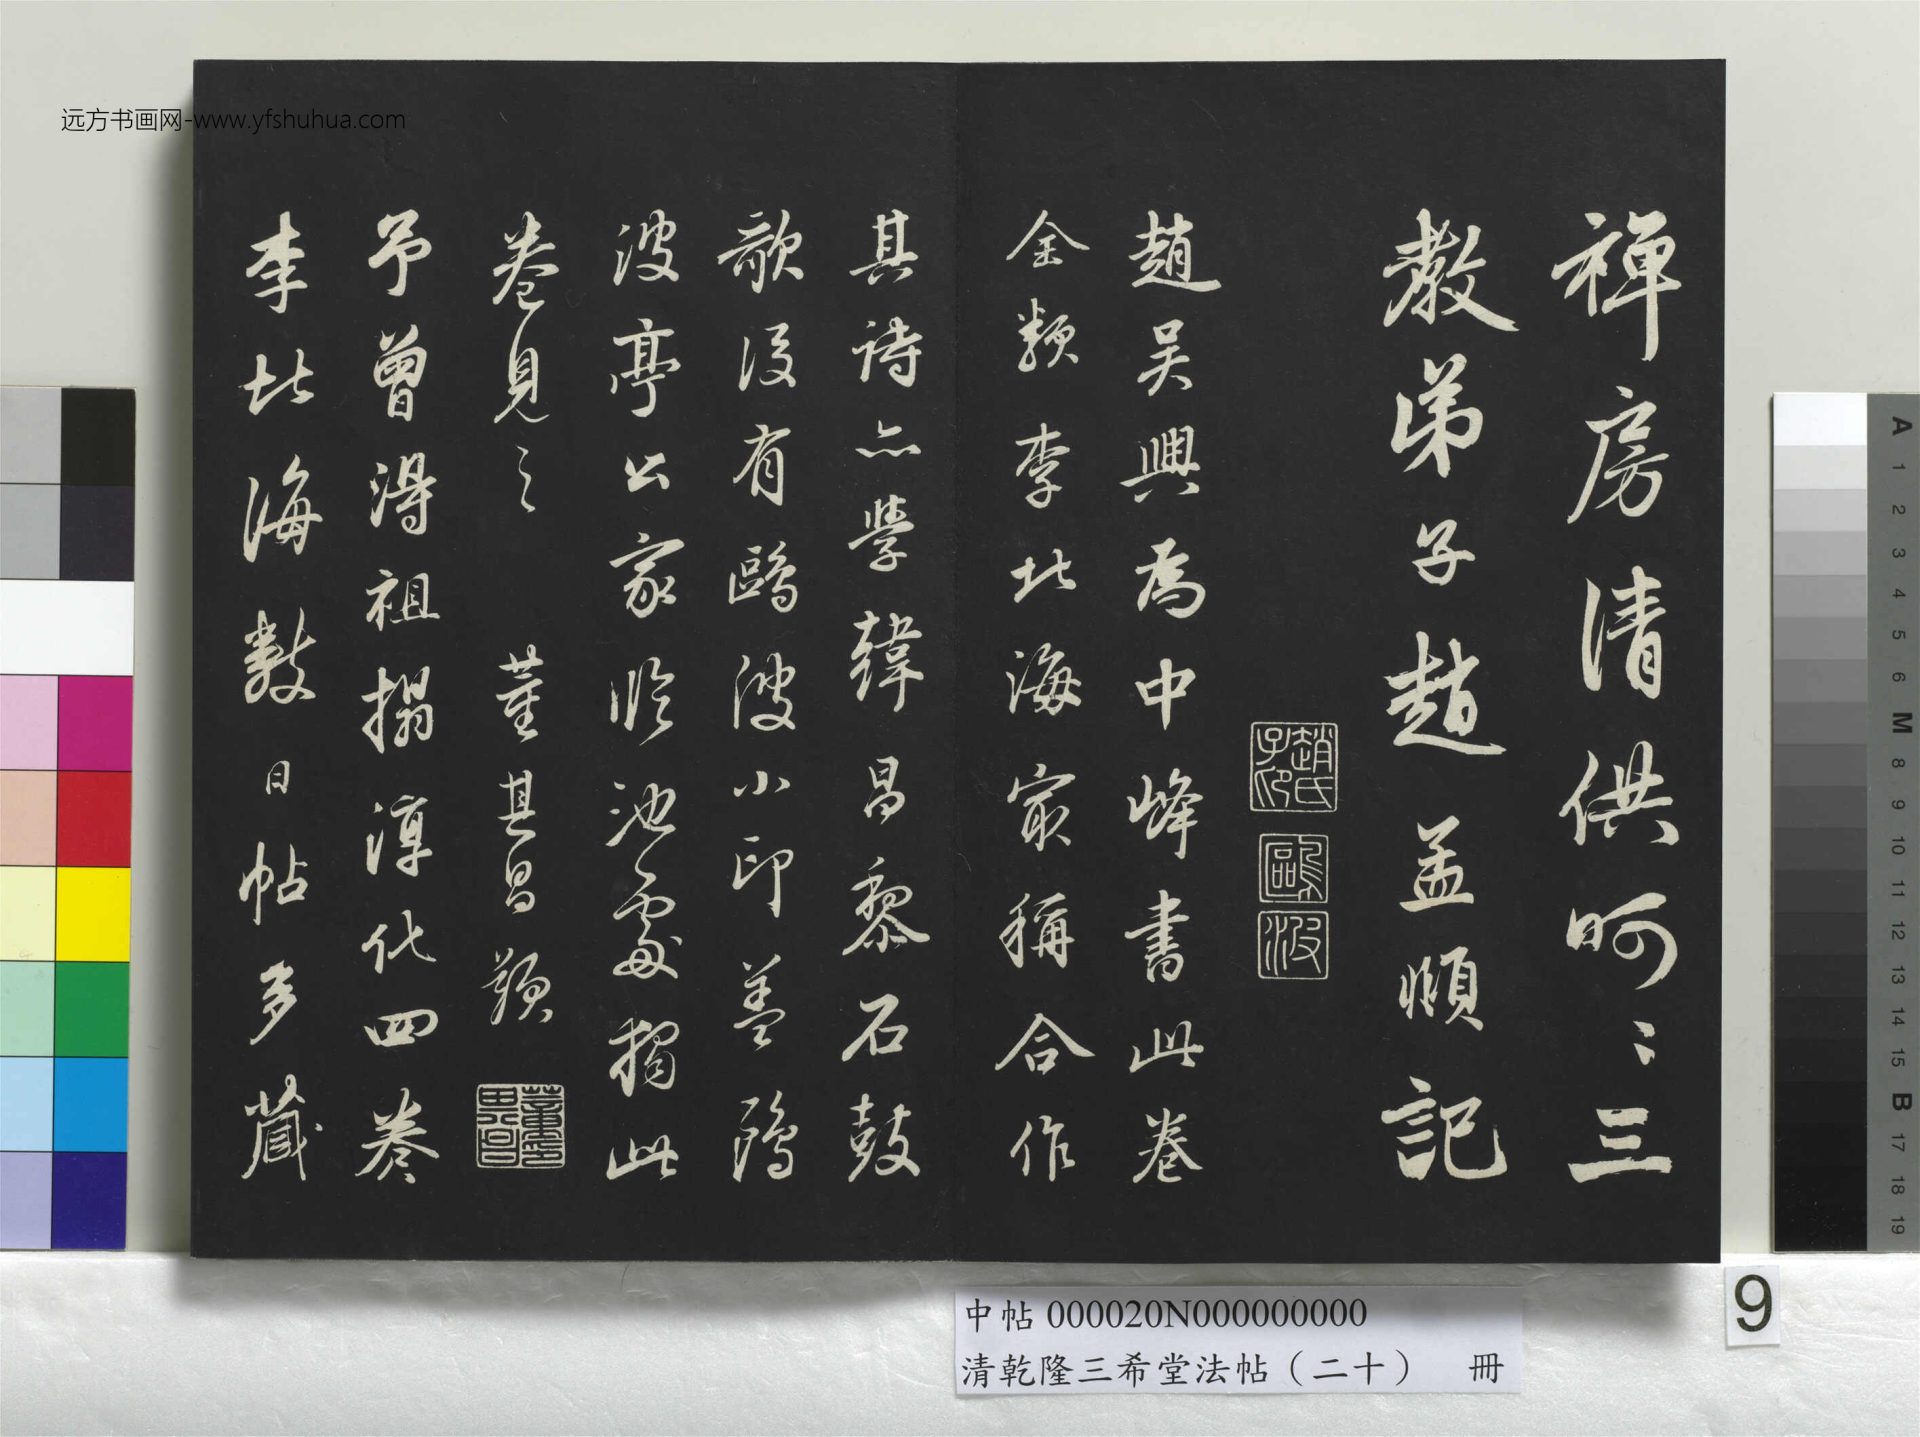 禅房清供呵〻三
教弟子趙孟頫記
趙氏子印
鷗波
趙吴興為中峰書此卷
全類李北海宸稱合作
其詩亦學韓昌黎石鼓
歌後有鷗波小印盖鷗
波亭公家臨池處獨此
卷見之 董其昌題
予曾得祖搨淳化四卷
李北海數日帖多藏
远方书画网-www.yfshuhua.com
中帖 000020N000000000
清乾隆三希堂法帖（二十） 冊
9
A
1
2
3
4
5
6
M
8
9
10
11
12
13
14
15
B
17
18
19